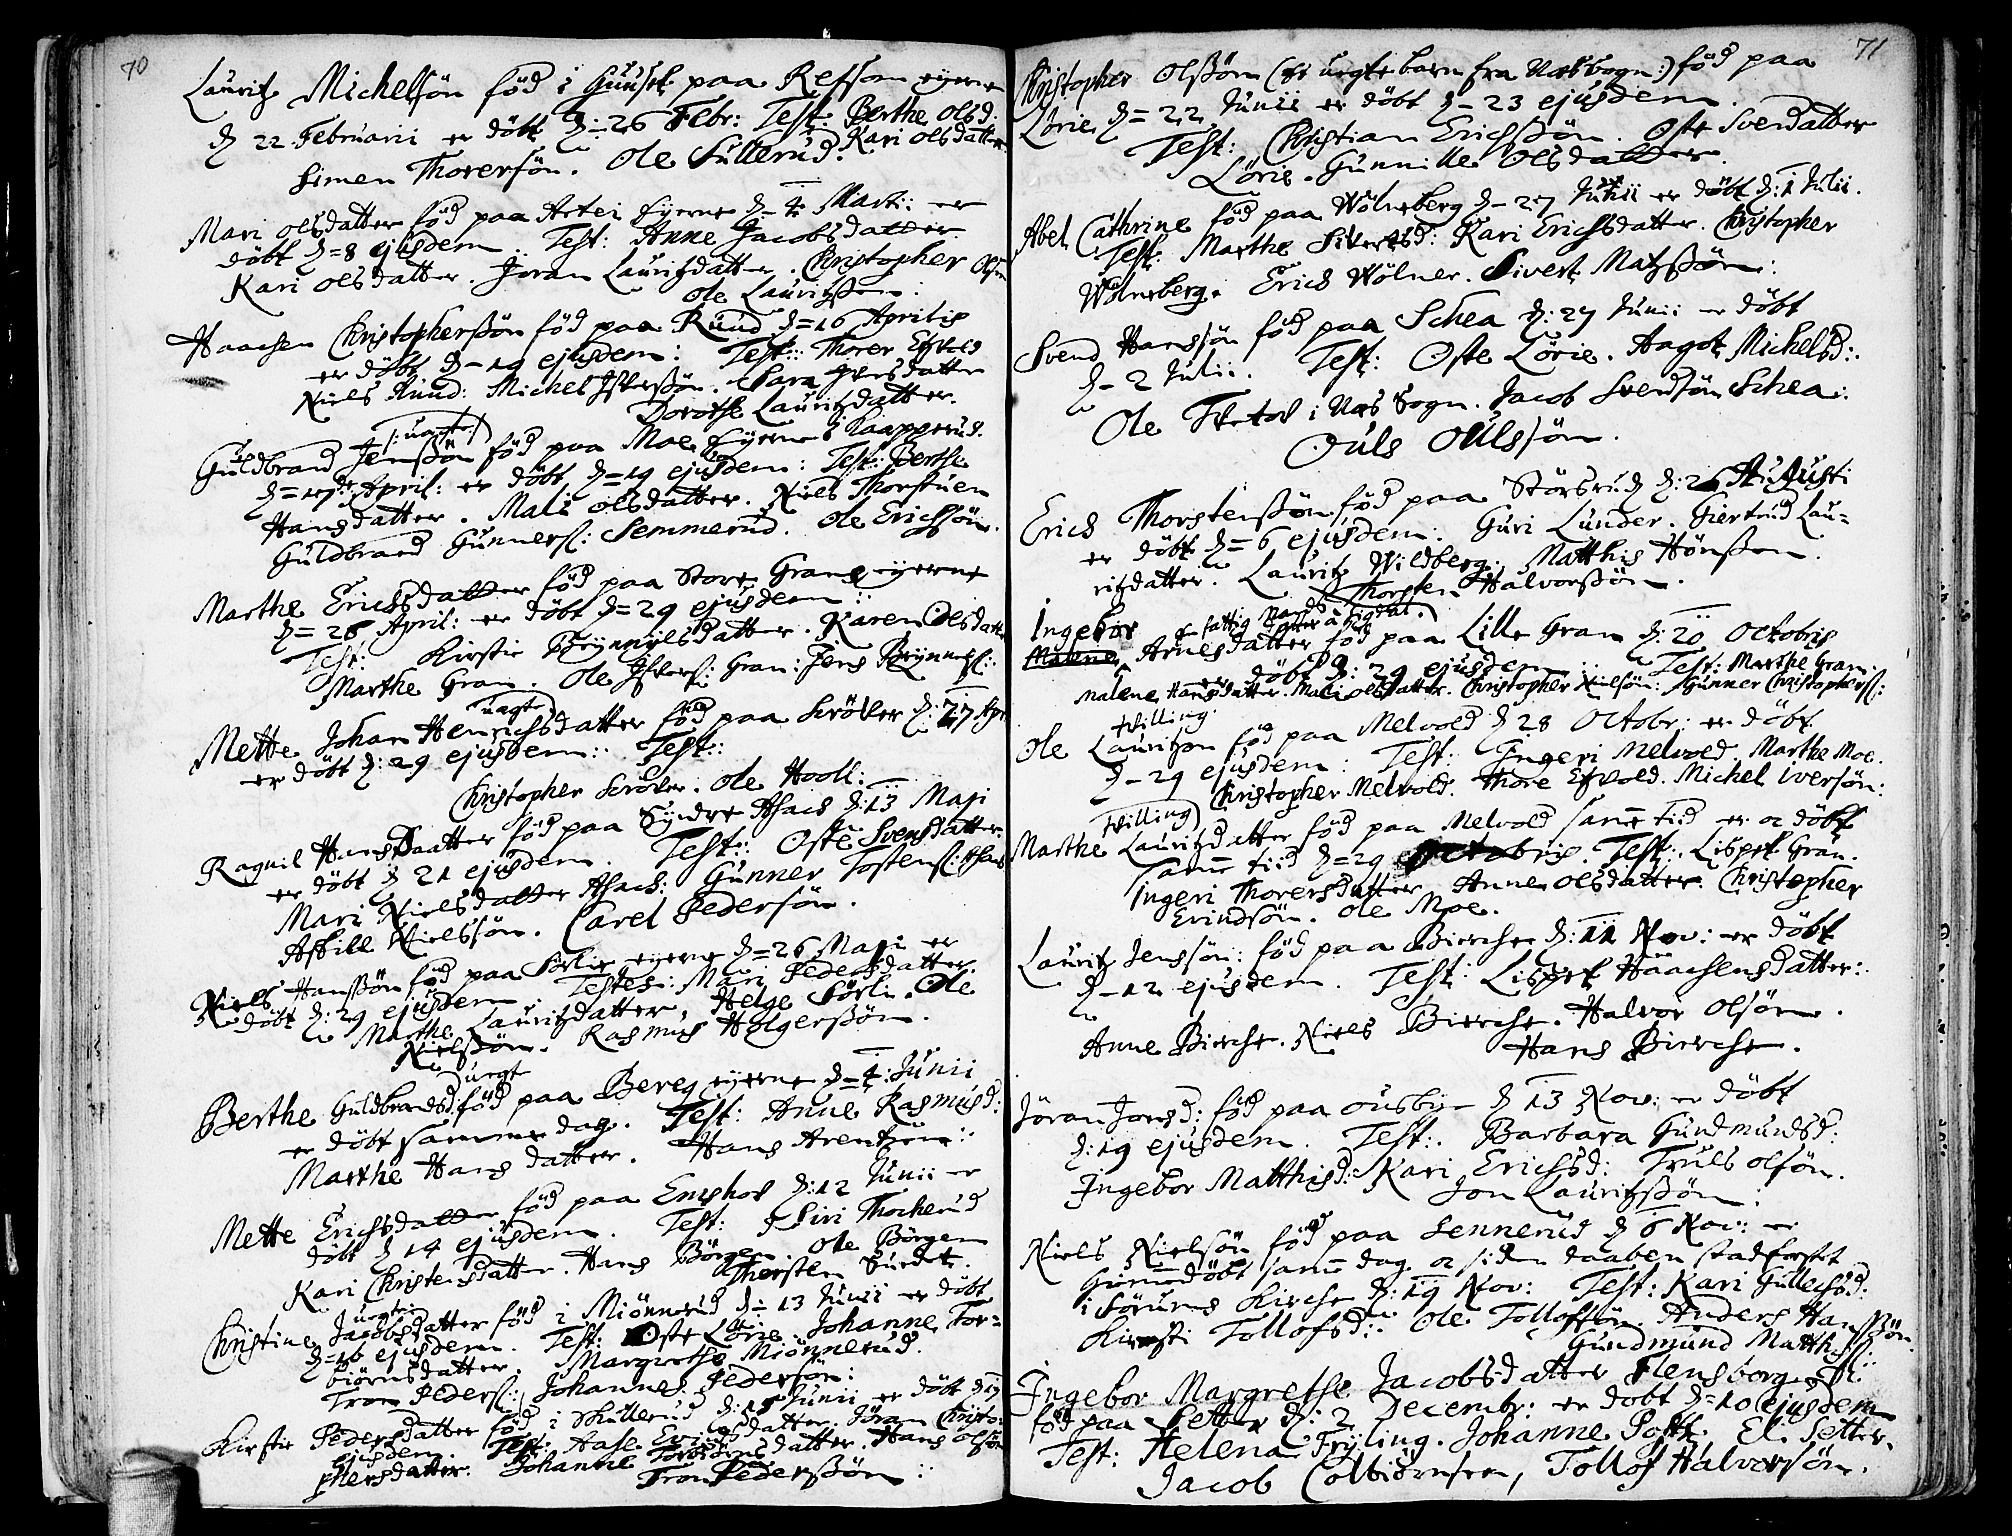 70
Lauritz Michelsön född i Huuset paa Refsom ejerne
d. 22 Februarii er döbt d: 26 Febr: Test: Berthe Olsd:
Simen Thorersön. Ole Sullerud. Kari Olsdatter
Mari Olsdatter föd paa Artei Eyerne d= 4 Martii er
döbt d=8 ejusdem. Test: Anne Jacobsdatter.
Kari Olsdatter. Joran Lauritzdatter. Christopher Olsön
Ole Lauritzsen:
Haachen Christopherssön föd paa Ruud d=16 Aprilis
er döbt d=19 ejusdem: Test:: Thorer Efvold
Niels Ruud: Michel Ifverssön. Sara Ifversdatter
Dorothe Lauritzdatter.
/:uægte:/
Guldbrand Jenssön föd paa Moe Eyernes Kaapperud.
d=17de April: er döbt d=19 ejusdem: Test: Berthe
Hansdatter. Mali Olsdatter. Niels Thorstuen
Guldbrand Gunners: Semmerud. Ole Erichsön.
Marthe Erichsdatter föd paa Store Gran eyerne
d= 26 April: er döbt d=29 ejusdem::
Test: Kirstie Brynnyelsdatter. Karen Olsdatter
Marthe Gran. Ole Ifvers: Gran: Jens Brynnels::
uægte
Mette Johan Henrichsdatter föd paa Kröker d: 27 Apr
er döbt d: 29 ejusdem:: Test::
Christopher Kröker. Ole Holl:
Ragnil Hansdaatter föd paa Syndre Asach d: 13 Maji
er döbt d 21 ejusdem. Test:: Oste Svendsdatter.
Mari Nielsdatter Asach: Gunner Tostens: Asach
Askill Nielssön. Carel Pedersön.
Niels Hanssön föd paa Sörlie eyerne d=26 Maji er
döbt d: 29 ejusdem: Testes: Mari Pedersdatter.
Marthe Lauritzdatter, Helge Sörli. Ole
Nielssön. Rasmus Holgerssön.
uægt
Berthe Guldbrandsd: föd paa Bereg eyerne d=4: Junii
er döbt samme dag. Test: Anne Rasmusd:
Marthe Hans datter. Hans Arentzön::
Mette Erichsdatter föd paa Emshol d:12 Junii er
döbt d 14 ejusdem. Test: Siri Thocherud
Kari Christensdatter. Hans Börgen. Ole Börgen
Thorsten Sundet.
uægte
Christine Jacobsdatter föd i Miönnerud d: 13 Junii er döbt
d=16 ejusdem. Test: Oste Lörie. Johanne Tor=
biörnsdatter. Margrethe Miönnerud.
Tron Peders: Johannes Pedersön:
Kirstie Pedersdatter föd i Skullerud d:15 Junii er döbt d 19
ejusdem. Test: Aase Erichsdatter. Jöran Christo:
phersdatter. Johanne Torbiörnsdatter. Hans Olsön
Tron Pederssön::
71
Christopher Olssön (et uegte barn fra Næs Sogn:) föd paa
Lörie d= 22 Junii er döbt d- 23 ejusdem.
Test: Christian Erichssön. Oste Svendatter
Lörie. Gunnille Olsdatter.
Abel Cathrine föd paa Wölneberg d- 27 Junii er döbt d: 1 Julii.
Test: Marthe Sivertsd: Kari Erichsdatter. Christopher
Wölneberg. Erich Wölner. Sivert Matzssön:
Svend Hanssön föd paa Schea d: 27 Junii er döbt
d- 2 Julii. Test: Oste Lörie. Aagot Michelsd:
Ole Fketvd i Næs Sogn. Jacob Svendsön Schea:
Ouls Oulssön.
Erich Thorstenssön föd paa Störsrud d: 2 Augusti
er döbt d= 6 ejusdem: Guri Lunder. Giertrud Lau=
ritzdatter. Lauritz Wildberg. Matthis Hönssen.
Thorsten Halvorssön.
en fattig Mands datter a Sigdal.
Ingebor
Malene Arnesdatter föd paa Lille Gran d: 20 Octobris
er döbt d: 29 ejusdem:: Test: Marthe Gran.
Malene Hansdatter. Mali Olsdatter. Christopher Nielsön: Gunner Christophers::
Tvilling
Ole Lauritzon föd paa Melvold d 28 Octobr: er döbt
d-29 ejusdem: Test: Ingeri Melvold. Marthe Moe.
Christopher Melvold. Thore Efvold. Michel Iversön:
Tvilling
Marthe Lauritzdatter föd paa Melvold samme tid er oc döbt
samme tiid d=29 Octobris. Test: Lisbet Gran.
Ingeri Thorersdatter, Anne Olsdatter. Christopher
Evindsön. Ole Moe.
Lauritz Jenssön: föd paa Bierche d: 11 Nov: er döbt
d-12 ejusdem. Test: Lisbet Haachensdatter:
Anne Bierche. Niels Bierche. Halvor Olsön.
Hans Bierche.
Jöran Jonsd: föd paa Ousbye d 13 Nov: er döbt
d: 19 ejusdem. Test: Barbara Gundmundsd:
Ingebor Matthisd: Kari Erichsd: Truls Olsön.
Jon Lauritzssön:
Niels Nielsön föd paa Sennerud d 6 Nov: er
hiemmedöbt samme dag oc siden daaben stadfestet
i Sörums Kirche d: 19 Nov: Test: Kari Gullechsd:
Kirsti Tollofsd: Ole Tollofsön. Anders Hanssön.
Gundmund Matthiss::
Ingebor Margrethe Jacobsdatter Flensborg er
föd paa Setter d: 2 Decembr: er döbt d=10 ejusdem
Test: Helena Fryling. Johanne Post. El: Setter.
Jacob Colbiörnsen, Tollof Halvorsön.